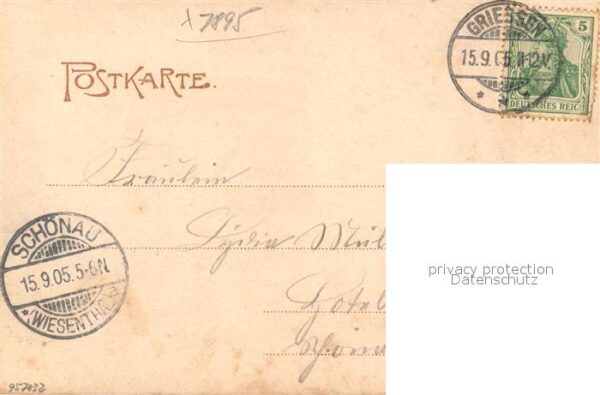 x 7895
GRIESSEN
15.9.05 11-12V.
5
DEUTSCHES REICH
POSTKARTE.
Fräulein
SCHÖNAU
15.9.05.5-6N.
(WIESENTHAL)
Lydia Mül
Hotel
Schöna
privacy protection
Datenschutz
957032